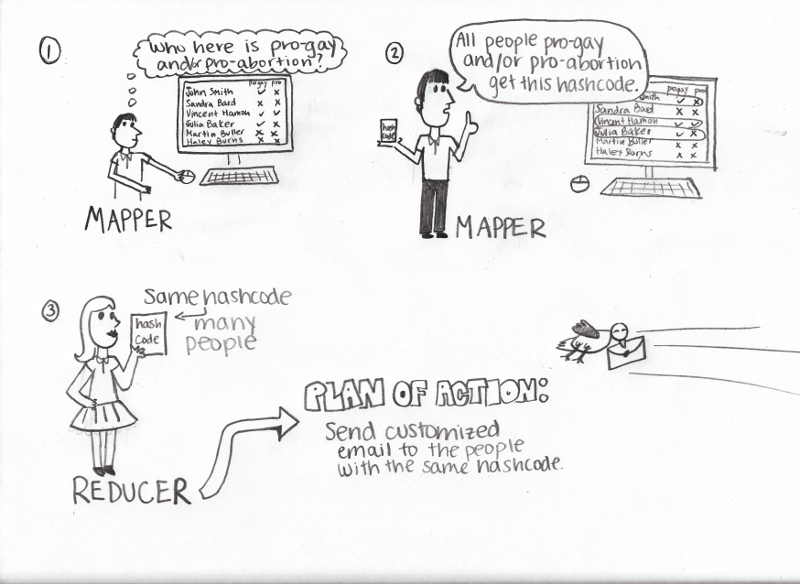 1
Who here is pro-gay
and/or pro-abortion?
progay pro
John Smith ✓ x
Sandra Bard x x
Vincent Hamon ✓ ✓
Julia Baker ✓ x
Martin Buller x x
Haley Burns x x
MAPPER
2
All people pro-gay
and/or pro-abortion
get this hashcode.
hash
code
progay pro
Smith ✓ x
Sandra Bard x x
Vincent Hamon ✓ ✓
Julia Baker ✓ x
Martin Buller x x
Haley Burns x x
MAPPER
3
Same hashcode
many
people
hash
code
REDUCER
PLAN OF ACTION:
Send customized
email to the people
with the same hashcode.